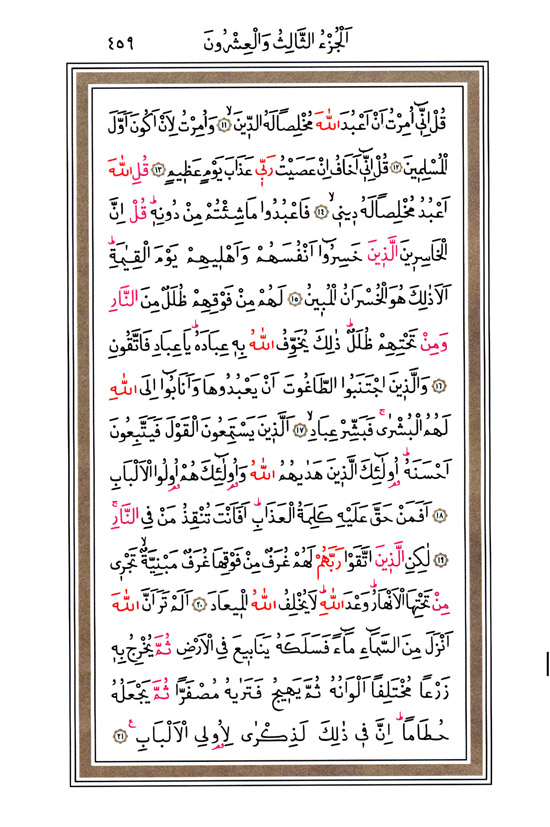 اَلْجُزْءُ الثَّالِثُ وَالْعِشْرُونَ ٤٥٩
قُلْ اِنّٖٓي اُمِرْتُ اَنْ اَعْبُدَ اللّٰهَ مُخْلِصاً لَهُ الدّٖينَۙ ﴿١١﴾ وَاُمِرْتُ لِاَنْ اَكُونَ اَوَّلَ
الْمُسْلِمٖينَ ﴿١٢﴾ قُلْ اِنّٖٓي اَخَافُ اِنْ عَصَيْتُ رَبّٖي عَذَابَ يَوْمٍ عَظٖيمٍ ﴿١٣﴾ قُلِ اللّٰهَ
اَعْبُدُ مُخْلِصاً لَهُ دٖينٖيۙ ﴿١٤﴾ فَاعْبُدُوا مَا شِئْتُمْ مِنْ دُونِهٖؕ قُلْ اِنَّ
الْخَاسِرٖينَ الَّذٖينَ خَسِرُٓوا اَنْفُسَهُمْ وَاَهْلٖيهِمْ يَوْمَ الْقِيٰمَةِؕ
اَلَا ذٰلِكَ هُوَ الْخُسْرَانُ الْمُبٖينُ ﴿١٥﴾ لَهُمْ مِنْ فَوْقِهِمْ ظُلَلٌ مِنَ النَّارِ
وَمِنْ تَحْتِهِمْ ظُلَلٌؕ ذٰلِكَ يُخَوِّفُ اللّٰهُ بِهٖ عِبَادَهُؕ يَا عِبَادِ فَاتَّقُونِ
﴿١٦﴾ وَالَّذٖينَ اجْتَنَبُوا الطَّاغُوتَ اَنْ يَعْبُدُوهَا وَاَنَابُٓوا اِلَى اللّٰهِ
لَهُمُ الْبُشْرٰىۚ فَبَشِّرْ عِبَادِۙ ﴿١٧﴾ اَلَّذٖينَ يَسْتَمِعُونَ الْقَوْلَ فَيَتَّبِعُونَ
اَحْسَنَهُؕ اُو۬لٰٓئِكَ الَّذٖينَ هَدٰيهُمُ اللّٰهُ وَاُو۬لٰٓئِكَ هُمْ اُو۬لُوا الْاَلْبَابِ
﴿١٨﴾ اَفَمَنْ حَقَّ عَلَيْهِ كَلِمَةُ الْعَذَابِؕ اَفَاَنْتَ تُنْقِذُ مَنْ فِي النَّارِۚ
﴿١٩﴾ لٰكِنِ الَّذٖينَ اتَّقَوْا رَبَّهُمْ لَهُمْ غُرَفٌ مِنْ فَوْقِهَا غُرَفٌ مَبْنِيَّةٌۙ تَجْرٖي
مِنْ تَحْتِهَا الْاَنْهَارُؕ وَعْدَ اللّٰهِؕ لَا يُخْلِفُ اللّٰهُ الْمٖيعَادَ ﴿٢٠﴾ اَلَمْ تَرَ اَنَّ اللّٰهَ
اَنْزَلَ مِنَ السَّمَٓاءِ مَٓاءً فَسَلَكَهُ يَنَابٖيعَ فِي الْاَرْضِ ثُمَّ يُخْرِجُ بِهٖ
زَرْعاً مُخْتَلِفاً اَلْوَانُهُ ثُمَّ يَهٖيجُ فَتَرٰيهُ مُصْفَراًّ ثُمَّ يَجْعَلُهُ
حُطَاماًؕ اِنَّ فٖي ذٰلِكَ لَذِكْرٰى لِاُو۬لِي الْاَلْبَابِ ﴿٢١﴾ ع